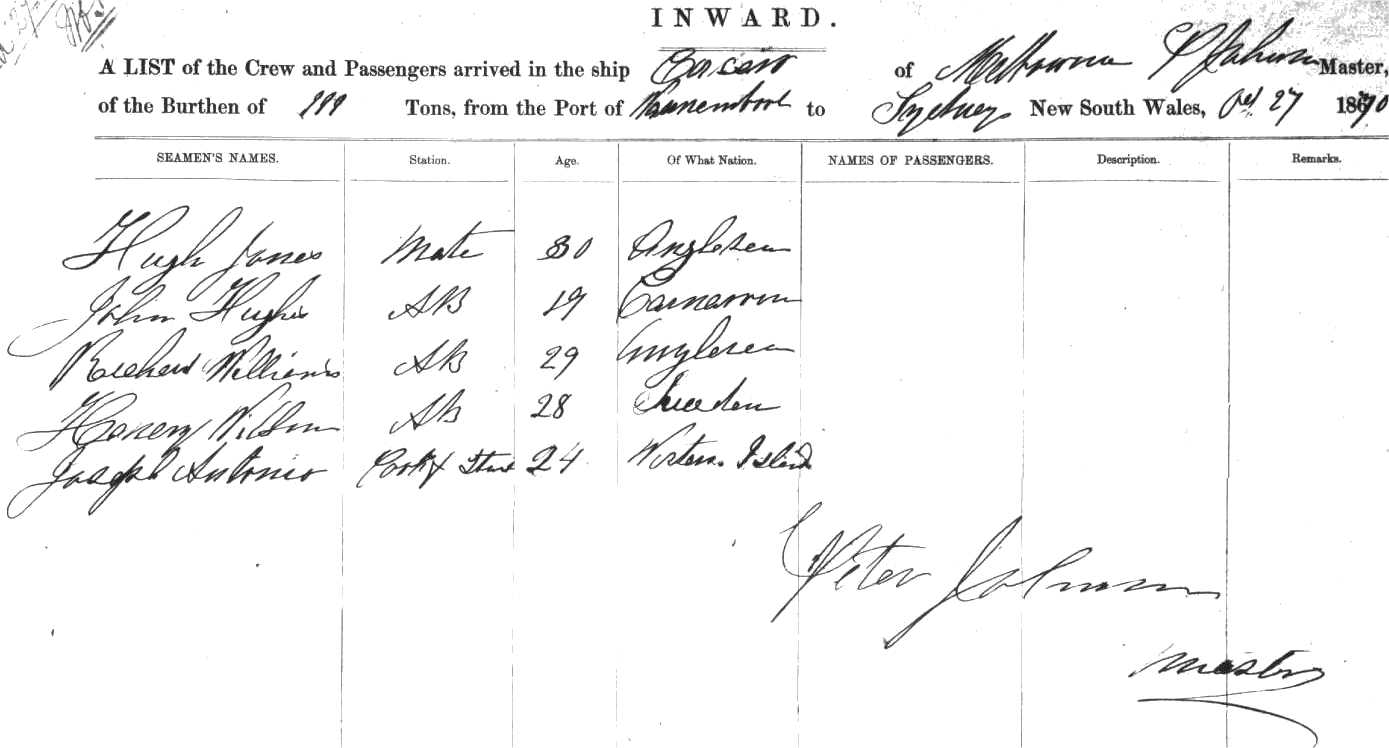 INWARD.
A LIST of the Crew and Passengers arrived in the ship of Melbourne P Johnson Master,
of the Burthen of Tons, from the Port of Warrnambool to Sydney New South Wales, Oct 27 1870
SEAMEN'S NAMES. Station. Age. Of What Nation. NAMES OF PASSENGERS. Description. Remarks.
Hugh Jones Mate 30 Anglesea
John Hughes AB 19 Carnarvon
Richard Williams AB 29 Anglesea
Henery Wilson AB 28 Sweden
Joseph Antonio Cook & Stwd 24 Western Island
Peter Johnson
Master